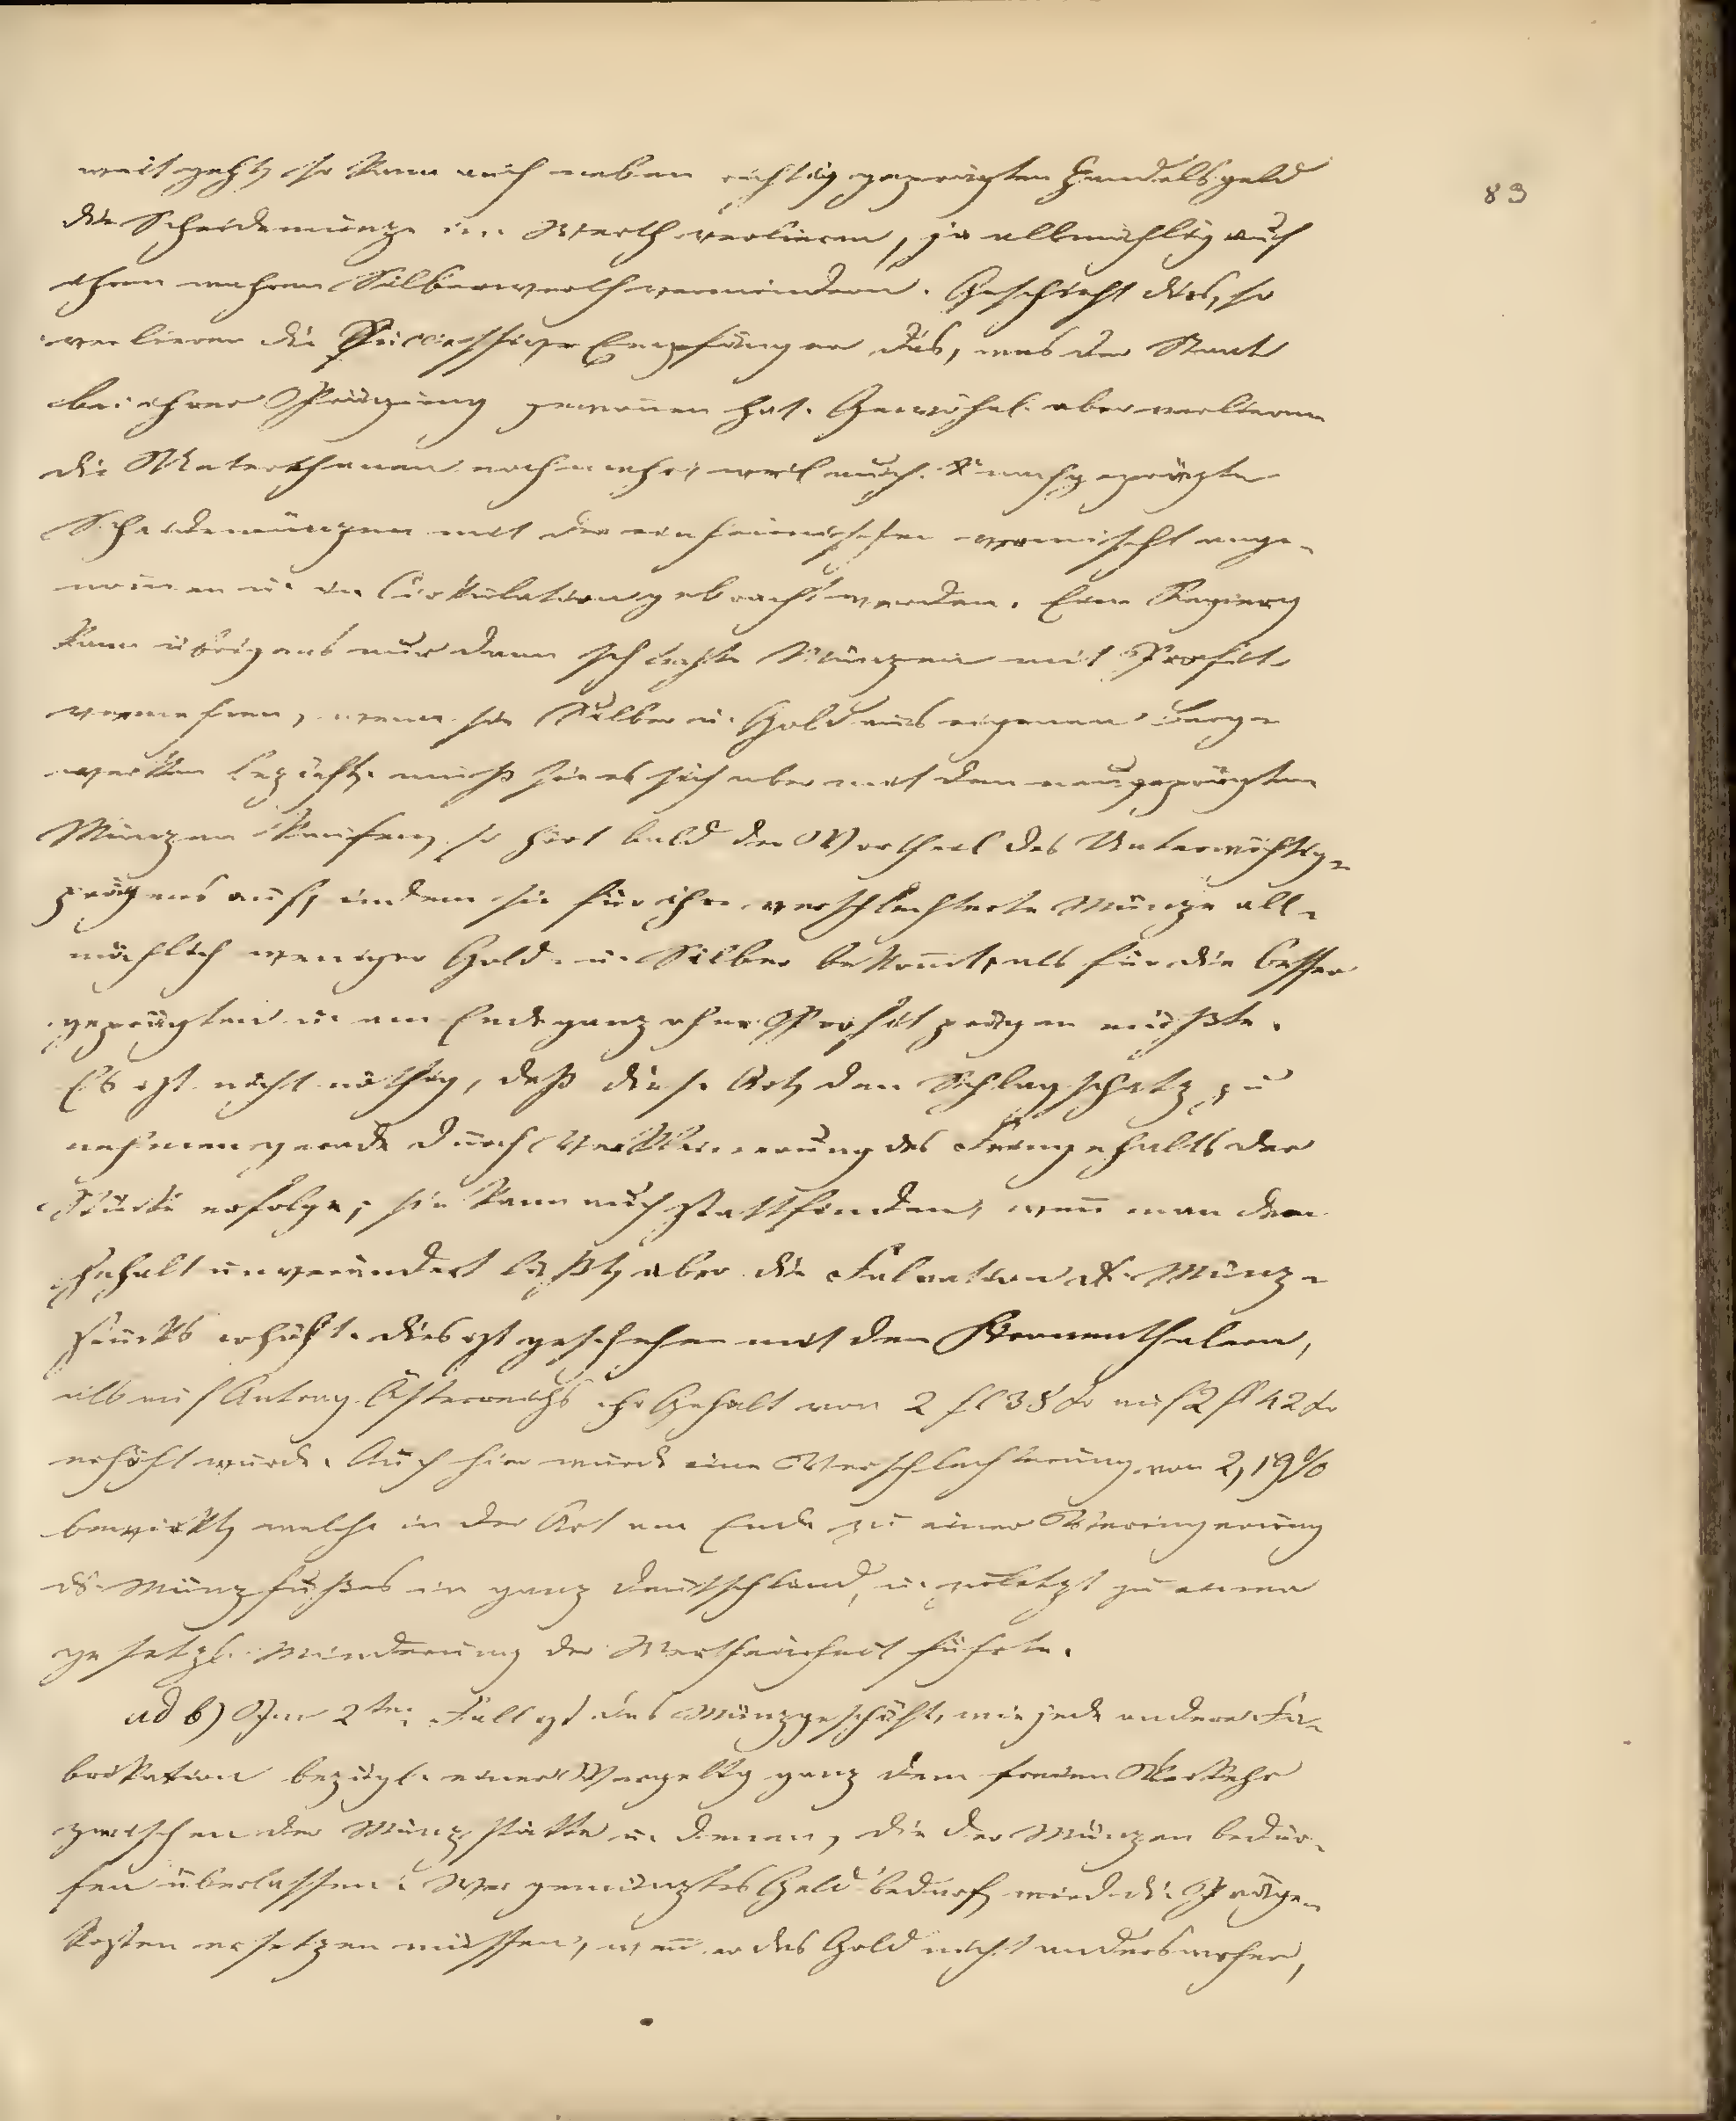 83
weit geht, so kann auch neben richtig geprägten Handelsgeld
die Scheidemünze im Werth verlieren, ja allmählig auch
ihren wahren Silberwerth vermindern. Geschieht dies, so
verlieren die Empfänger das, was der Staat
bei ihrer Prägung gewonnen hat. Gewöhnl. aber verlieren
die Unterthanen noch mehr, weil auch nachgeprägte
Scheidemünzen mit der einheimischen vermischt ange-
nom̄en u. in Cirkulation gebracht werden. Eine Regierg
kann übrigens nur dann schlechte Münzen mit Profit
vermehren, wenn sie Silber u. Gold aus eigenen Berg-
werken bezieht, muß sie es sich aber mit den neugeprägten
Münzen kaufen, so hört bald der Vortheil des Unterwichtig-
prägens auf, indem sie für ihre verschlechterte Münze all-
mählich weniger Gold u. Silber bekom̄t, als für die besser
geprägten u. am Ende ganz ohne Profit prägen müßte.
Es ist nicht nöthig, daß diese Art, den Schlagschatz zu
nehmen gerade durch Verkleinerung des Feingehalts der
Stücke erfolge, sie kann auch stattfinden, wen̄ man den
Gehalt unverändert läßt, aber die Valvation d. Münz-
stücks erhöht. dies ist geschehen mit den Kronenthalern,
als auf Antrag Östereichs ihr Gehalt von 2 fl 38 kr auf 2 fl 42 kr
erhöht wurde. Auch hier wurde eine Verschlechterung von 2,19 %
bewirkt, welche in der Art am Ende zu einer Veringerung
ds Münzfußes in ganz Deutschland, u. zuletzt zu einer
gesetzl. Minderung der Wertheinheit führte.
ad b) Im 2ten Fall ist das Münzgeschäft, wie jede andere Fa-
brikation bezügl. einer Vergeltg ganz dem freien Verkehr
zwischen der Münzstätte u. denen, die der Münzen bedür-
fen überlassen. Wer gemünztes Geld bedarf, wird die Präge-
kosten ersetzen müssen, wen̄ er das Gold nicht anderswoher,